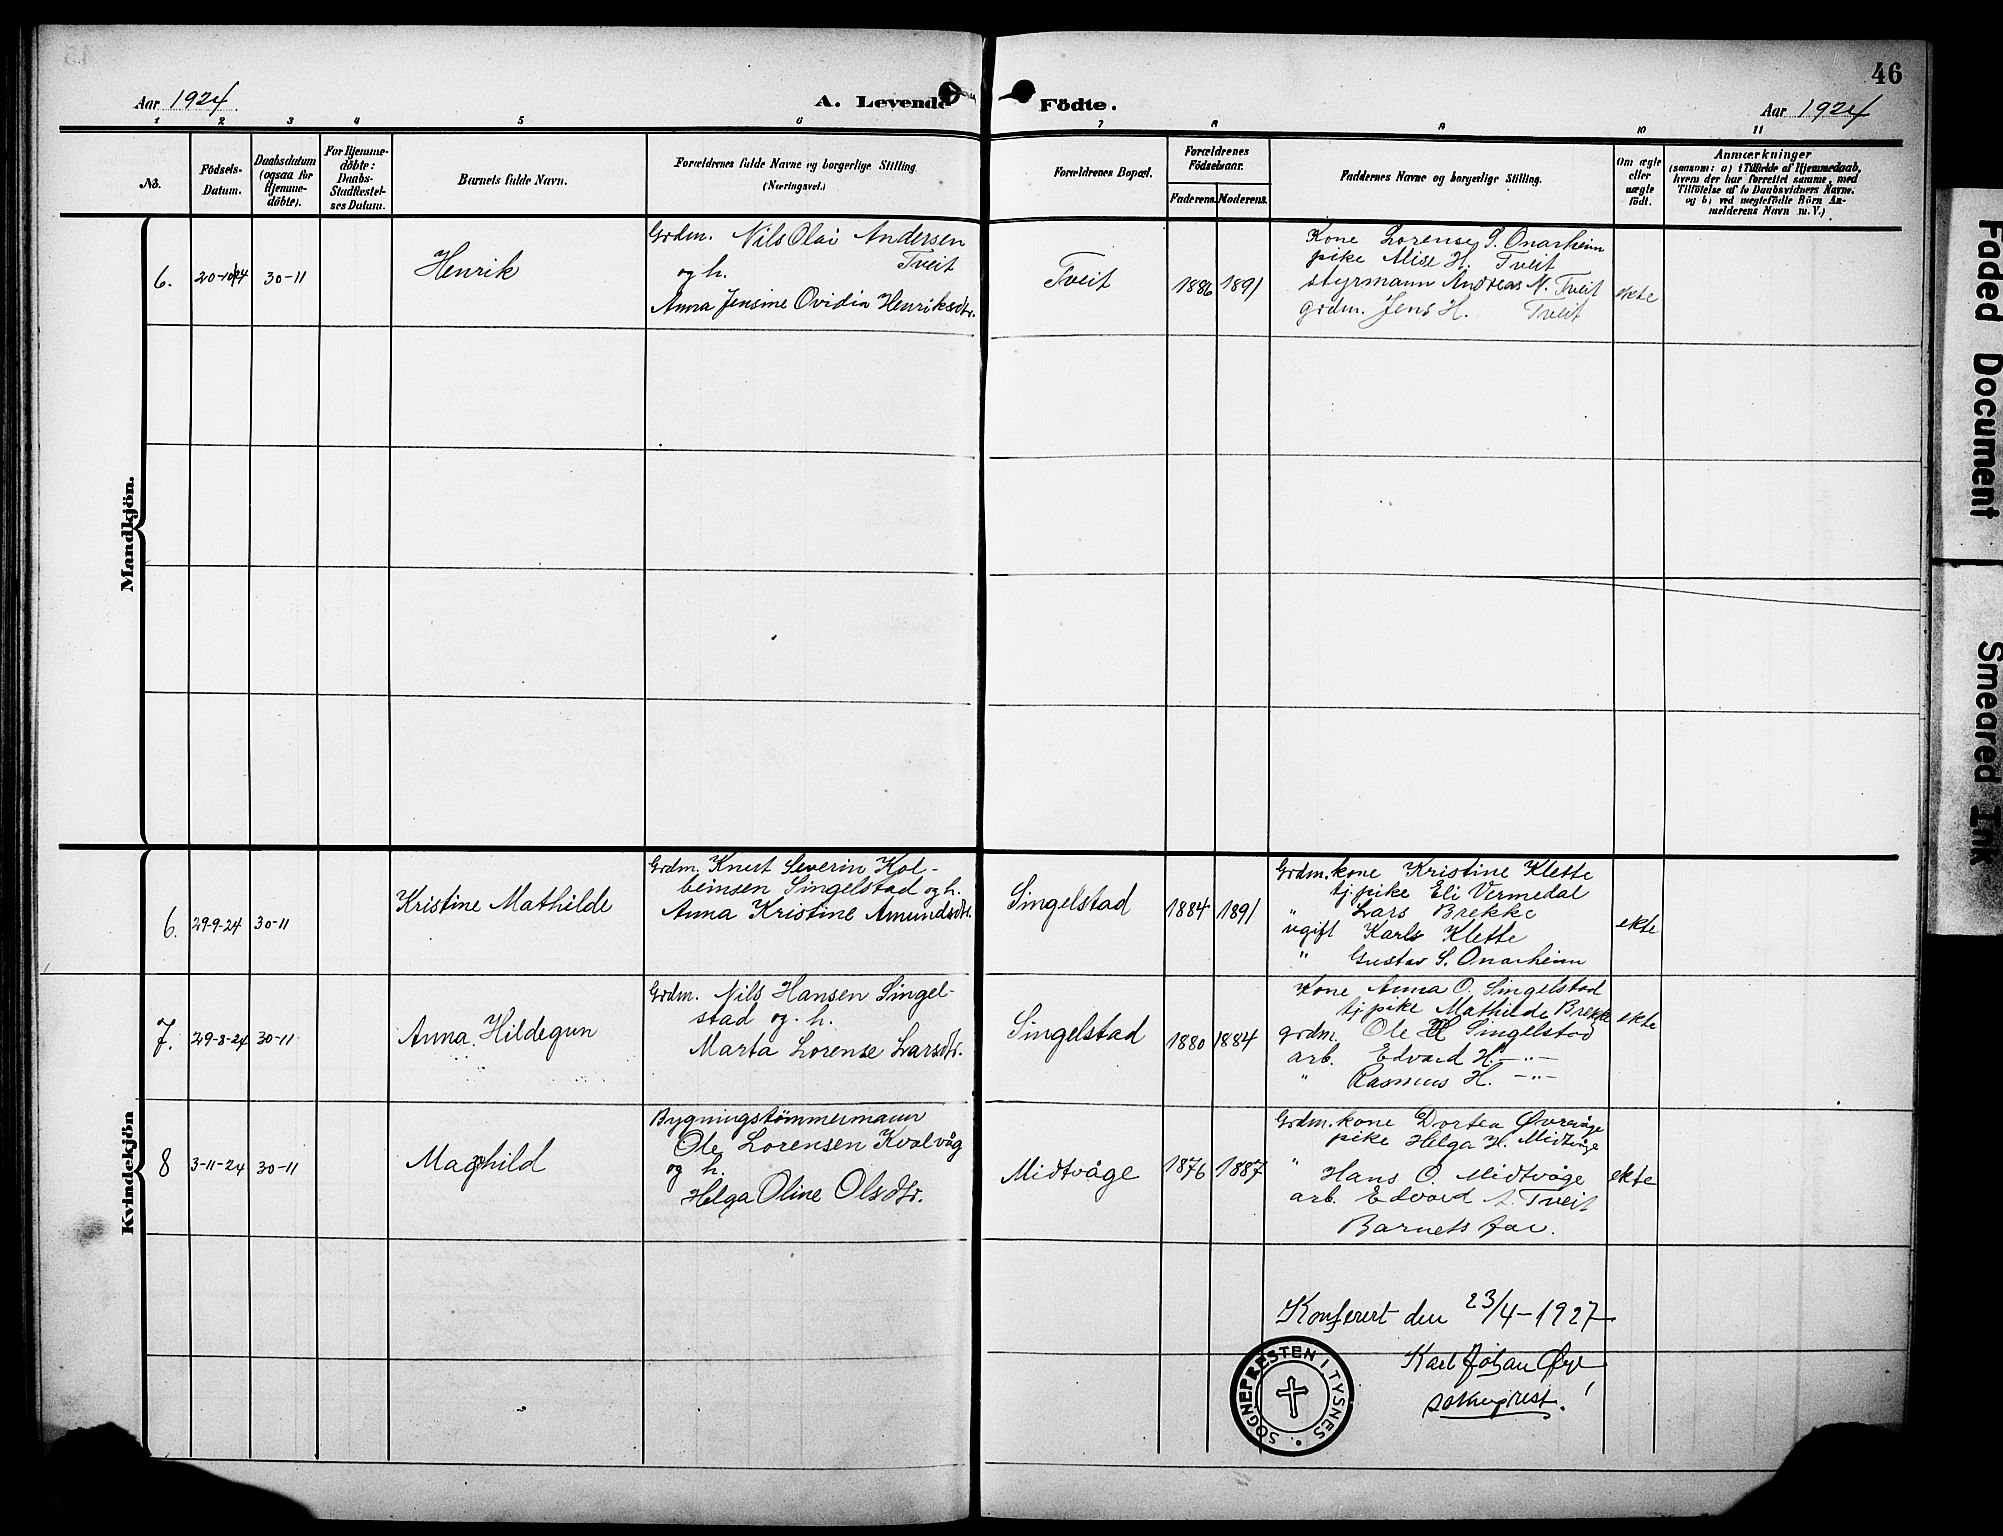 46
Aar 1924
A. Levende Födte.
Aar 1924
1 2 3 4 5 6 7 8 9 10 11
No.
Födsels-Datum.
Daabsdatum (ogsaa for Hjemme-döbte).
For Hjemme-döbte: Daabs-Stadfestel-ses Datum.
Barnets fulde Navn.
Forældrenes fulde Navne og borgerlige Stilling (Næringsvei.)
Forældrenes Bopæl.
Forældrenes Födselsaar.
Faderens. Moderens.
Faddernes Navne og borgerlige Stilling.
Om ægte eller uægte födt.
Anmærkninger
(saasom: a) i Tilfælde af Hjemmedaab,
hvem der har forrettet samme, med
Tilföielse af to Daabsvidners Navne.
og b) ved uægtefödte Börn An-
melderens Navn m. V.)
Mandkjön.
6. 20-10-24 30-11 Henrik
Grdm. Nils Olai Andersen
Tveit
og h.
Anna Jensine Ovidia Henriksdtr.
Tveit 1886 1891
Kone Lorense S. Onarheim
pike Alise H. Tveit
styrmann Andreas N. Tveit
grdm. Jens H. Tveit
ekte
Kvindekjön
6. 29-9-24 30-11 Kristine Mathilde
Grdm. Knut Severin Kol-
beinsen Singelstad og h.
Anna Kristine Amundsdtr.
Singelstad 1884 1891
Grdm. kone Kristine Klette
tj. pike Eli Vermedal
" Lars Brekke
ugift Karls Klette
" Gustav S. Onarheim
ekte
7. 29-8-24 30-11 Anna Hildegun
Grdm. Nils Hansen Singel-
stad og h.
Marta Lorense Larsdtr.
Singelstad 1880 1884
Kone Anna O. Singelstad
tj. pike Mathilde Brekke
grdm. Ole H Singelstad
arb. Edvard H. -"-
" Rasmus H. -"-
ekte
8 3-11-24 30-11 Magnhild
Bygningstømmermann
Ole Lorensen Kvalvåg
og h.
Helga Oline Olsdtr.
Midtvåge 1876 1887
Grdm. kone Dortea Øvrevåge
pike Helga H. Midtvåge
" Hans O. Midtvåge
arb. Edvard Tveit
Barnets far.
ekte
Konferert den 23/4-1927
Karl Johan Øye
sokneprest.
SOGNEPRESTEN I TYSNES
Faded Document
Smeared Ink